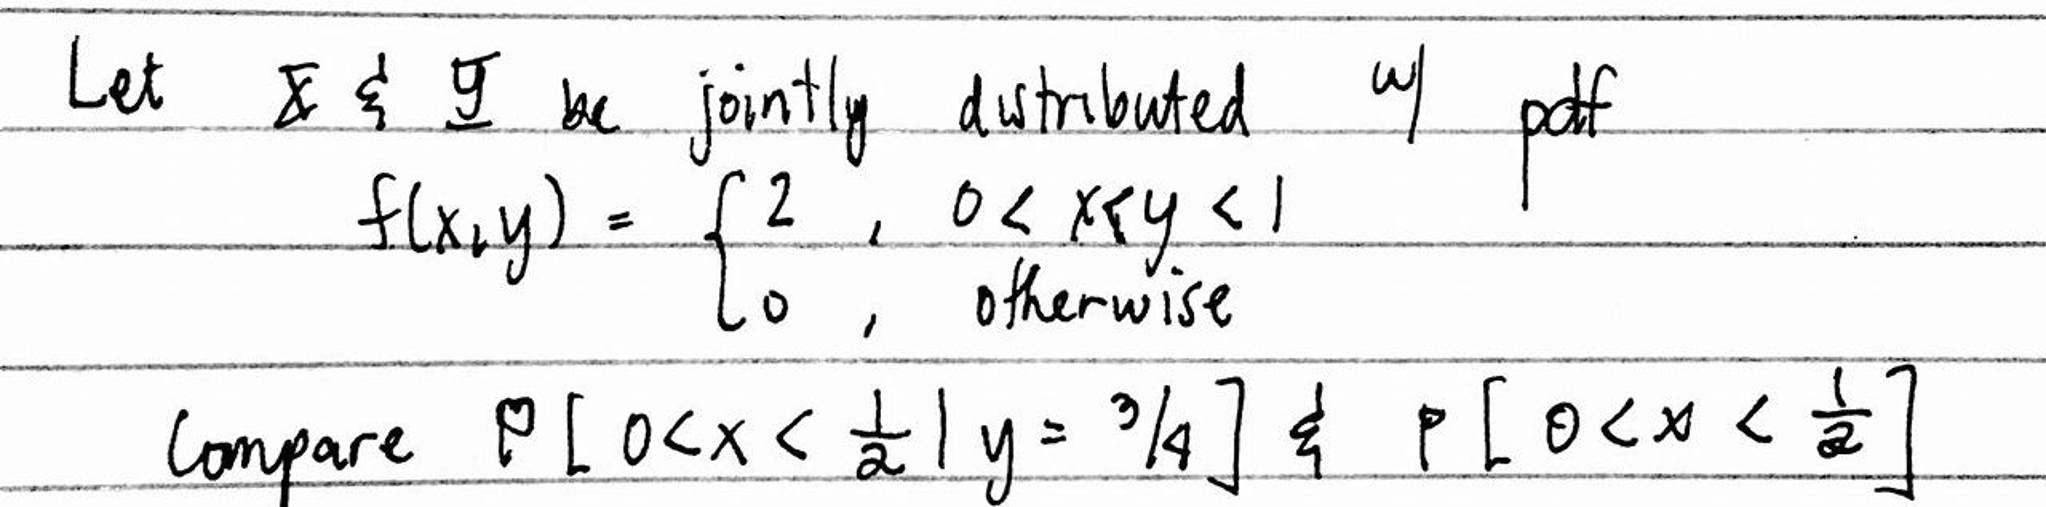 Let X & Y be jointly distributed w/ pdf
f(x,y) = { 2 , 0 < x < y < 1
0 , otherwise
Compare P[0<x< 1/2 | y = 3/4] & P[0<x< 1/2]